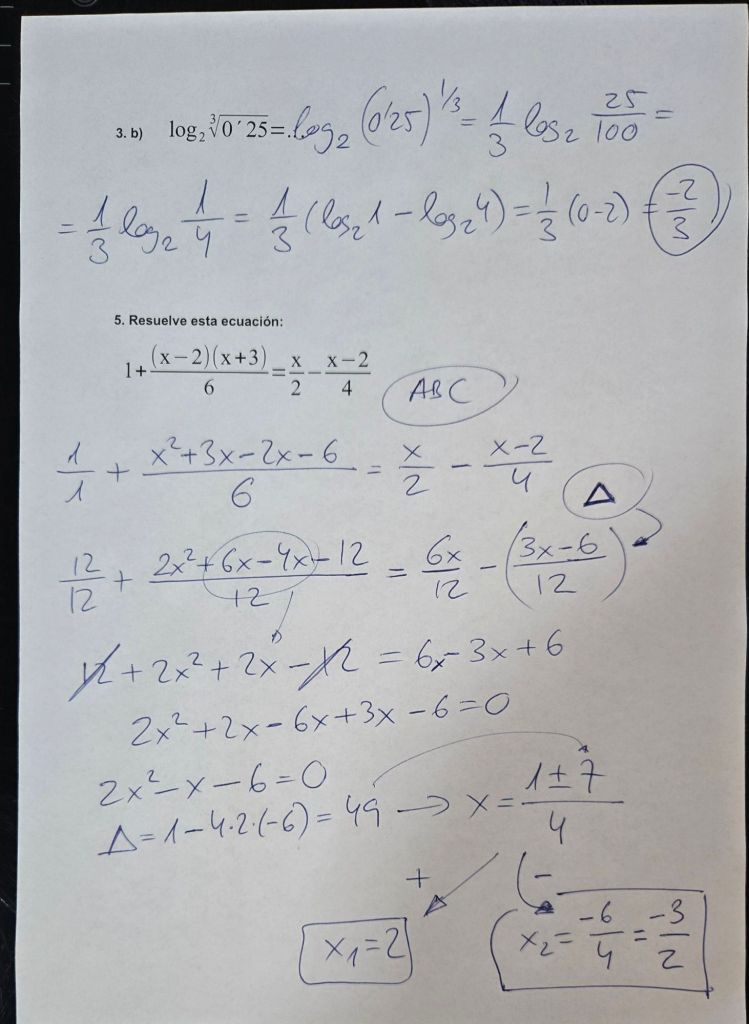 3. b) log₂ ∛0´25 =... log₂ (0'25)^1/3 = 1/3 log₂ 25/100 =
= 1/3 log₂ 1/4 = 1/3 (log₂1 - log₂4) = 1/3 (0-2) = -2/3
5. Resuelve esta ecuación:
1+ (x-2)(x+3)/6 = x/2 - x-2/4
ABC
1/1 + x²+3x-2x-6/6 = x/2 - x-2/4
Δ
12/12 + 2x²+6x-4x-12/12 = 6x/12 - (3x-6/12)
12 + 2x² + 2x - 12 = 6x - 3x + 6
2x² + 2x - 6x + 3x - 6 = 0
2x² - x - 6 = 0
Δ = 1 - 4·2·(-6) = 49 → x = 1 ± 7/4
+ -
x₁ = 2 x₂ = -6/4 = -3/2